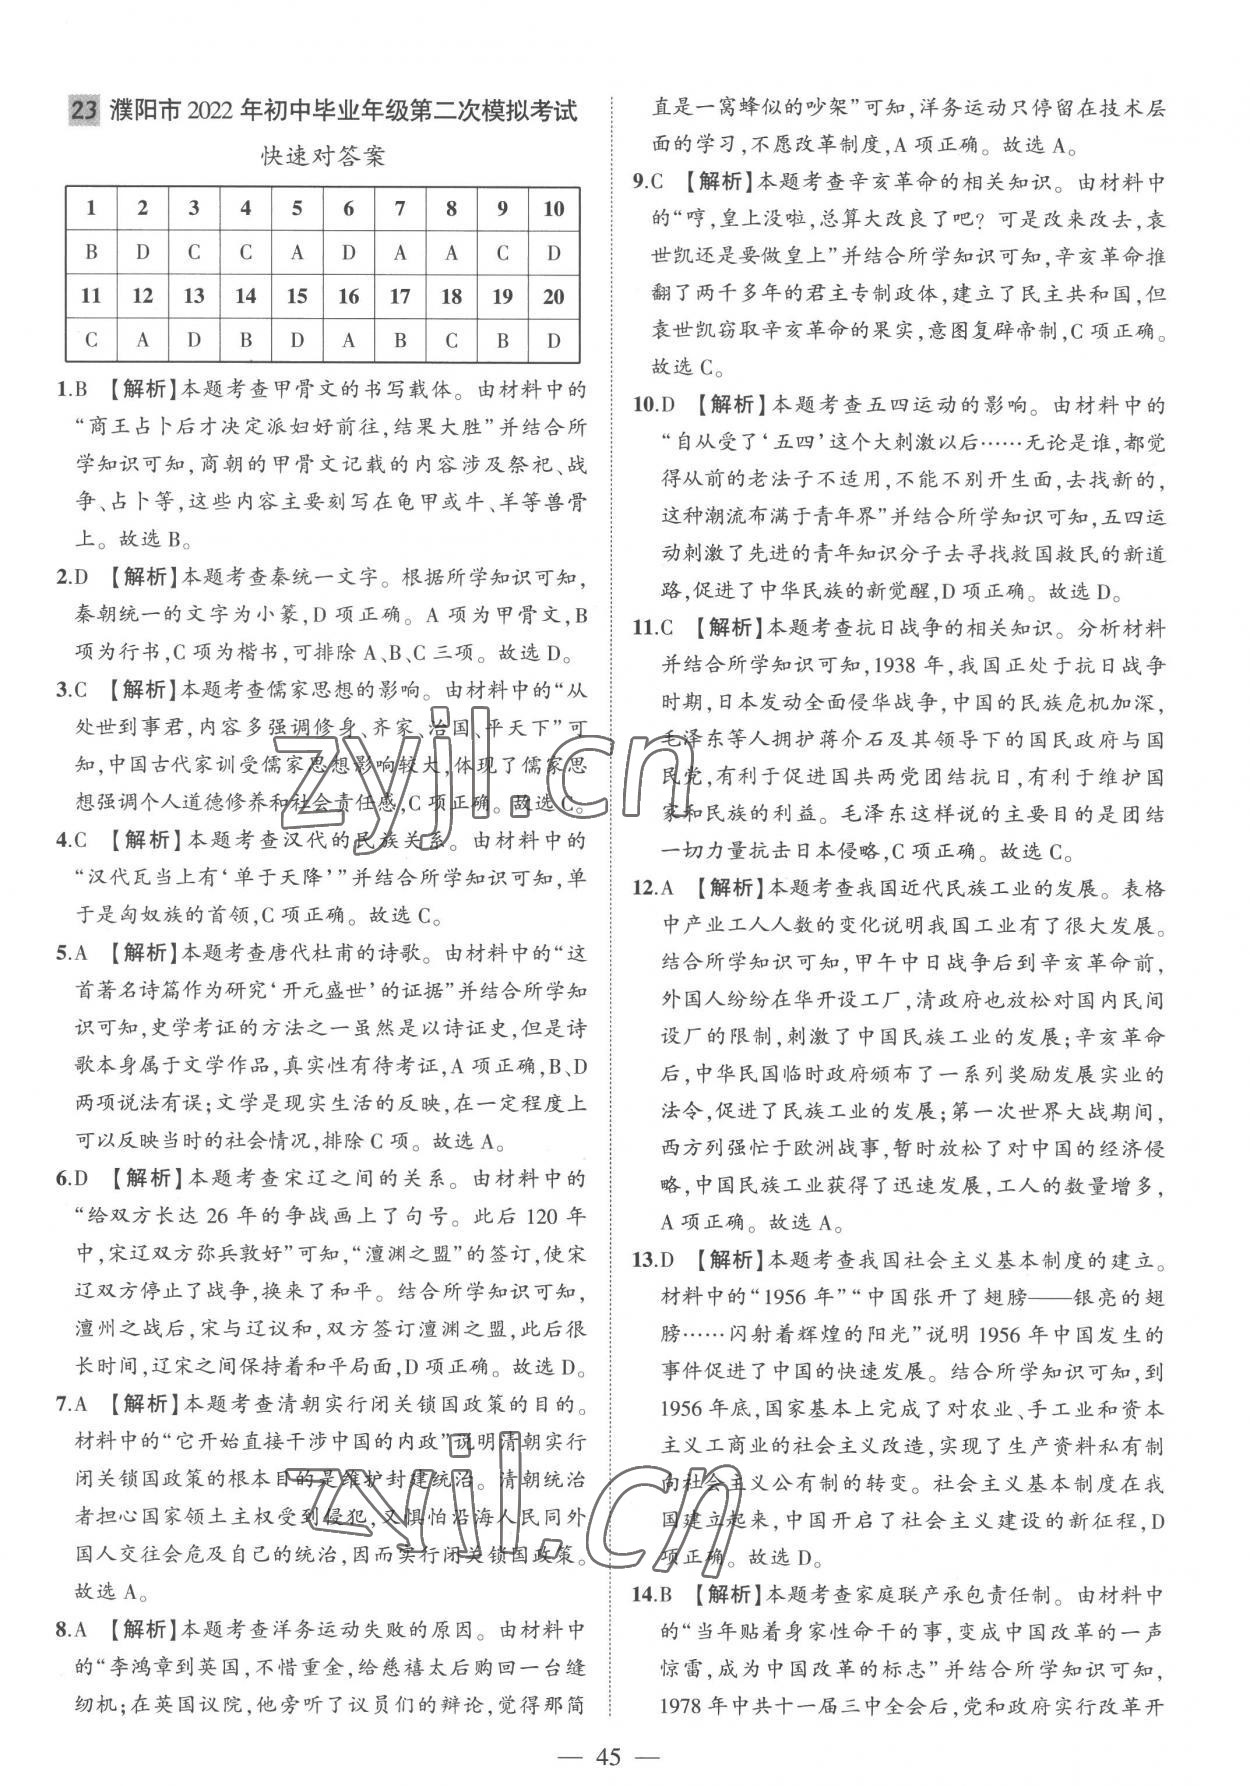 23 濮阳市 2022 年初中毕业年级第二次模拟考试
快速对答案
1 2 3 4 5 6 7 8 9 10
B D C C A D A A C D
11 12 13 14 15 16 17 18 19 20
C A D B D A B C B D
1.B 【解析】本题考查甲骨文的书写载体。由材料中的
“商王占卜后才决定派妇好前往,结果大胜”并结合所
学知识可知,商朝的甲骨文记载的内容涉及祭祀、战
争、占卜等,这些内容主要刻写在龟甲或牛、羊等兽骨
上。故选 B。
2.D 【解析】本题考查秦统一文字。根据所学知识可知,
秦朝统一的文字为小篆,D 项正确。A 项为甲骨文,B
项为行书,C 项为楷书,可排除 A、B、C 三项。故选 D。
3.C 【解析】本题考查儒家思想的影响。由材料中的“从
处世到事君,内容多强调修身、齐家、治国、平天下”可
知,中国古代家训受儒家思想影响较大,体现了儒家思
想强调个人道德修养和社会责任感,C 项正确。故选 C。
4.C 【解析】本题考查汉代的民族关系。由材料中的
“汉代瓦当上有‘单于天降’”并结合所学知识可知,单
于是匈奴族的首领,C 项正确。故选 C。
5.A 【解析】本题考查唐代杜甫的诗歌。由材料中的“这
首著名诗篇作为研究‘开元盛世’的证据”并结合所学知
识可知,史学考证的方法之一虽然是以诗证史,但是诗
歌本身属于文学作品,真实性有待考证,A 项正确,B、D
两项说法有误;文学是现实生活的反映,在一定程度上
可以反映当时的社会情况,排除 C 项。故选 A。
6.D 【解析】本题考查宋辽之间的关系。由材料中的
“给双方长达 26 年的争战画上了句号。此后 120 年
中,宋辽双方弥兵敦好”可知,“澶渊之盟”的签订,使宋
辽双方停止了战争,换来了和平。结合所学知识可知,
澶州之战后,宋与辽议和,双方签订澶渊之盟,此后很
长时间,辽宋之间保持着和平局面,D 项正确。故选 D。
7.A 【解析】本题考查清朝实行闭关锁国政策的目的。
材料中的“它开始直接干涉中国的内政”说明清朝实行
闭关锁国政策的根本目的是维护封建统治。清朝统治
者担心国家领土主权受到侵犯,又惧怕沿海人民同外
国人交往会危及自己的统治,因而实行闭关锁国政策。
故选 A。
8.A 【解析】本题考查洋务运动失败的原因。由材料中
的“李鸿章到英国,不惜重金,给慈禧太后购回一台缝
纫机;在英国议院,他旁听了议员们的辩论,觉得那简
直是一窝蜂似的吵架”可知,洋务运动只停留在技术层
面的学习,不愿改革制度,A 项正确。故选 A。
9.C 【解析】本题考查辛亥革命的相关知识。由材料中
的“哼,皇上没啦,总算大改良了吧？可是改来改去,袁
世凯还是要做皇上”并结合所学知识可知,辛亥革命推
翻了两千多年的君主专制政体,建立了民主共和国,但
袁世凯窃取辛亥革命的果实,意图复辟帝制,C 项正确。
故选 C。
10.D 【解析】本题考查五四运动的影响。由材料中的
“自从受了‘五四’这个大刺激以后……无论是谁,都觉
得从前的老法子不适用,不能不别开生面,去找新的,
这种潮流布满于青年界”并结合所学知识可知,五四运
动刺激了先进的青年知识分子去寻找救国救民的新道
路,促进了中华民族的新觉醒,D 项正确。故选 D。
11.C 【解析】本题考查抗日战争的相关知识。分析材料
并结合所学知识可知,1938 年,我国正处于抗日战争
时期,日本发动全面侵华战争,中国的民族危机加深,
毛泽东等人拥护蒋介石及其领导下的国民政府与国
民党,有利于促进国共两党团结抗日,有利于维护国
家和民族的利益。毛泽东这样说的主要目的是团结
一切力量抗击日本侵略,C 项正确。故选 C。
12.A 【解析】本题考查我国近代民族工业的发展。表格
中产业工人人数的变化说明我国工业有了很大发展。
结合所学知识可知,甲午中日战争后到辛亥革命前,
外国人纷纷在华开设工厂,清政府也放松对国内民间
设厂的限制,刺激了中国民族工业的发展;辛亥革命
后,中华民国临时政府颁布了一系列奖励发展实业的
法令,促进了民族工业的发展;第一次世界大战期间,
西方列强忙于欧洲战事,暂时放松了对中国的经济侵
略,中国民族工业获得了迅速发展,工人的数量增多,
A 项正确。故选 A。
13.D 【解析】本题考查我国社会主义基本制度的建立。
材料中的“1956 年”“中国张开了翅膀——银亮的翅
膀……闪射着辉煌的阳光”说明 1956 年中国发生的
事件促进了中国的快速发展。结合所学知识可知,到
1956 年底,国家基本上完成了对农业、手工业和资本
主义工商业的社会主义改造,实现了生产资料私有制
向社会主义公有制的转变。社会主义基本制度在我
国建立起来,中国开启了社会主义建设的新征程,D
项正确。故选 D。
14.B 【解析】本题考查家庭联产承包责任制。由材料中
的“当年贴着身家性命干的事,变成中国改革的一声
惊雷,成为中国改革的标志”并结合所学知识可知,
1978 年中共十一届三中全会后,党和政府实行改革开
— 45 —
zyjl.cn
zyjl.cn